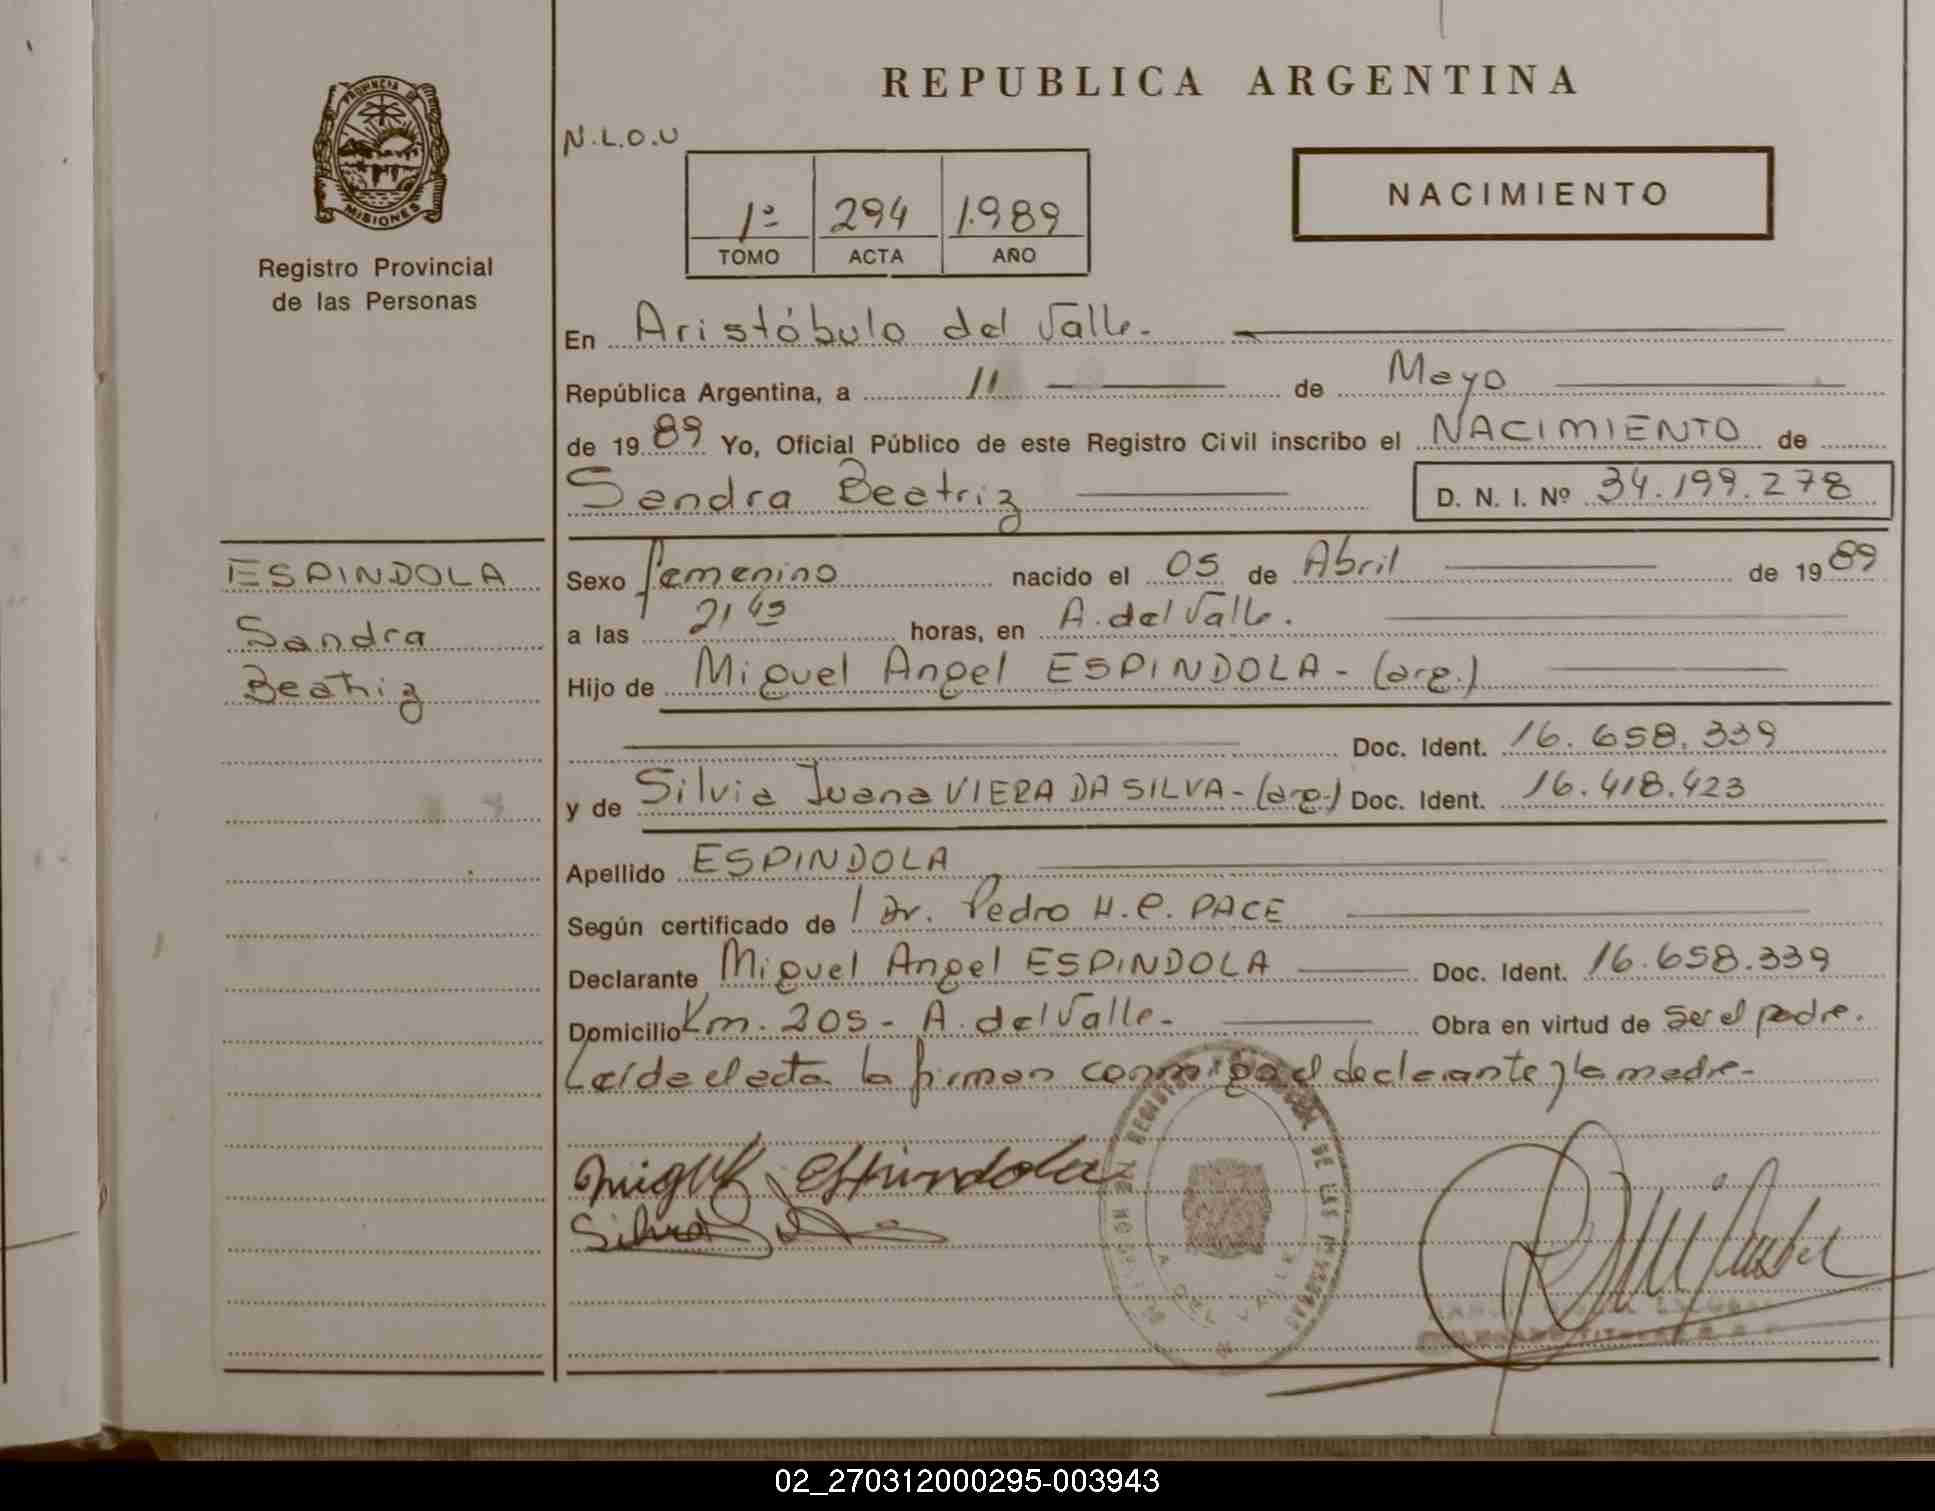 REPUBLICA ARGENTINA
PROVINCIA DE
MISIONES
Registro Provincial
de las Personas
N.L.O.U
NACIMIENTO
1º 294 1.989
TOMO ACTA AÑO
En Aristóbulo del Valle.-
República Argentina, a 11 de Mayo
de 1989 Yo, Oficial Público de este Registro Civil inscribo el NACIMIENTO de
Sandra Beatriz D. N. I. Nº 34.199.278
ESPINDOLA
Sandra
Beatriz
Sexo femenino nacido el 05 de Abril de 1989
a las 21 45 horas, en A. del Valle.
Hijo de Miguel Angel ESPINDOLA - (arg.)
y Doc. Ident. 16.658.339
y de Silvia Juana VIERA DA SILVA - (arg.) Doc. Ident. 16.418.423
Apellido ESPINDOLA
Según certificado de / Dr. Pedro H. C. PACE
Declarante Miguel Angel ESPINDOLA Doc. Ident. 16.658.339
Domicilio Km. 205 - A. del Valle.- Obra en virtud de ser el padre.
Leída el acta la firman conmigo el declarante y la madre.-
Miguel Espindola
A. DEL VALLE
02_270312000295-003943